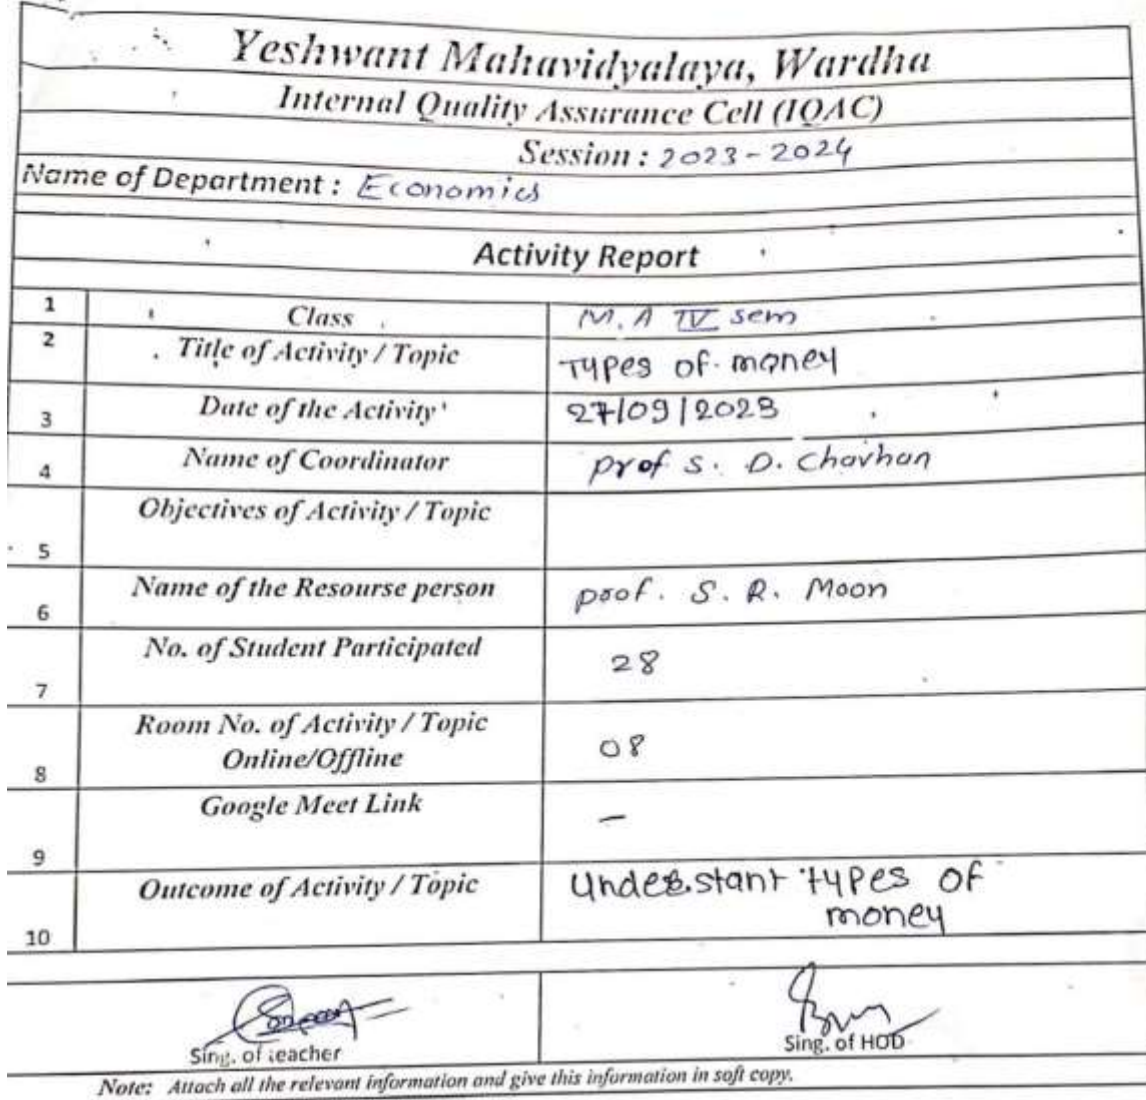 Yeshwant Mahavidyalaya, Wardha
Internal Quality Assurance Cell (IQAC)
Session : 2023-2024
Name of Department : Economics
Activity Report
1 Class M.A IV sem
2 Title of Activity / Topic Types of money
3 Date of the Activity 27/09/2023
4 Name of Coordinator prof S. D. Chavhan
5 Objectives of Activity / Topic
6 Name of the Resourse person prof. S. R. Moon
7 No. of Student Participated 28
8 Room No. of Activity / Topic 08
Online/Offline
9 Google Meet Link –
10 Outcome of Activity / Topic Understant types of
money
Sing. of teacher Sing. of HOD
Note: Attach all the relevant information and give this information in soft copy.